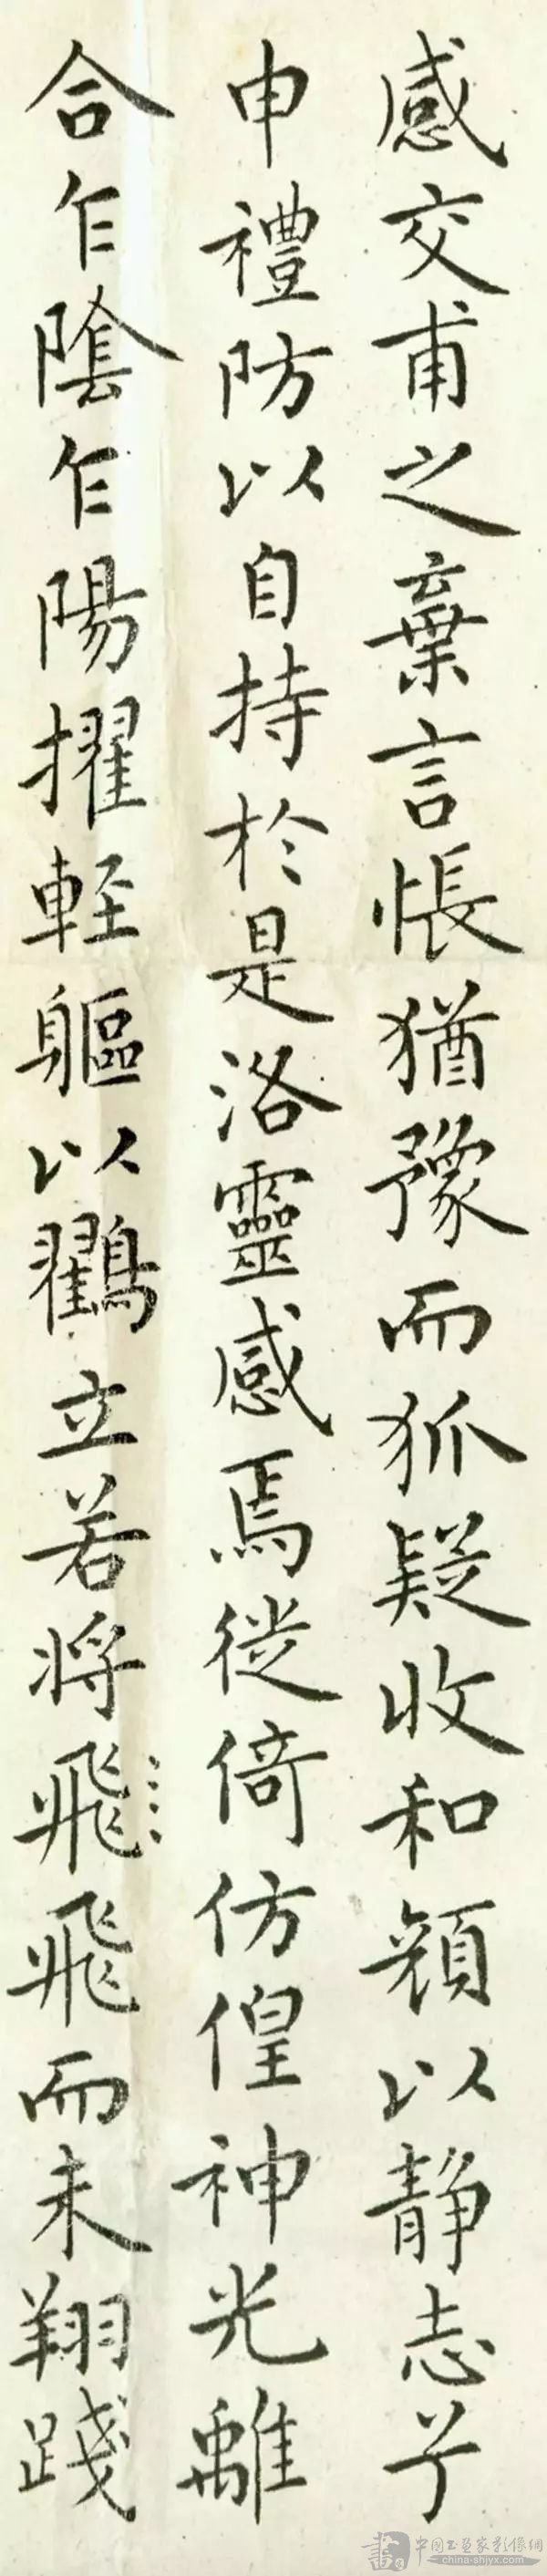 感交甫之棄言悵猶豫而狐疑收和顔以静志兮
申禮防以自持於是洛靈感焉徙倚仿偟神光離
合乍陰乍陽擢軽軀以鸖立若将飛飛而未翔踐
中国书画家影像網
china-shjyx.com